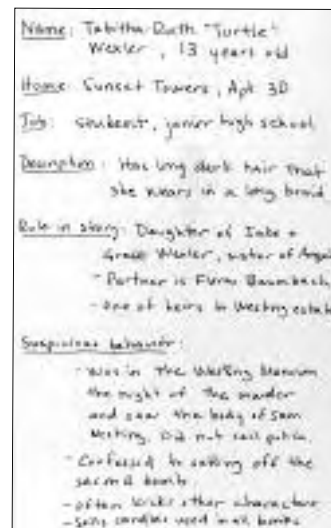 Name: Tabitha-Ruth "Turtle"
Wexler, 13 years old
Home: Sunset Towers, Apt 3D
Job: student, junior high school
Description: Has long dark hair that
she wears in a long braid
Role in story: Daughter of Jake +
Grace Wexler, sister of Angela
- Partner is Flora Baumbach
- One of heirs to Westing estate
Suspicious behavior:
- Was in the Westing Mansion
the night of the murder
and saw the body of Sam
Westing. Did not call police.
- Confessed to setting off the
second bomb
- often kicks other characters
- Sells candles used in all bombs